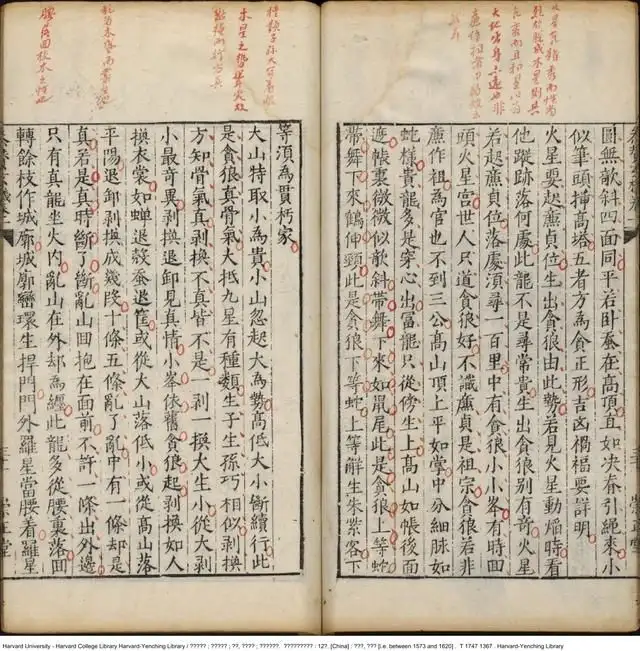 圓無欹斜四面同平若臥蚕在高頂直如決脊引繩來小
似筆頭挿高塔五者方為貪正形吉凶禍福要詳明
火星要起廉貞位生出貪狼由此勢若見火星動焰時看
他蹤跡落何處此龍不是尋常貴生出貪狼別有奇火星
若起廉貞位落處須尋一百里中有貪狼小小峯有時回
頭火星宮世人只道貪狼好不識廉貞是祖宗貪狼若非
廉作祖為官也不到三公高山頂上平如掌中分細脉如
蛇樣貴龍多是穿心出富龍只從傍生上高山如帳後面
遮帳裏微微似欹斜帶舞下來如鼠尾此是貪狼上等蛇
帶舞下來鶴伸頸此是貪狼下等蛇上等觧生朱紫客下
等須為貫朽家
大山特取小為貴小山忽起大為勢高低大小斷續行此
是貪狼真骨氣大抵九星有種類生子生孫巧相似剥換
方知骨氣真剥換不真皆不是一剥一換大生小從大剥
小最奇異剥換退卸見真情小峯依舊貪狼起剥換如人
換衣裳如蝉退殼蚕退筐或從大山落低小或從高山落
平陽退卸剥換成幾段十條五條亂了亂中有一條却是
真若是真時斷了斷亂山回抱在面前不許一條出外邊
只有真龍坐火內亂山在外却為纏此龍多從腰裏落回
轉餘枝作城廓城廓彎環生捍門門外羅星當腰着羅星
Harvard University - Harvard College Library Harvard-Yenching Library / ????? ; ????? ; ??, ???? ; ??????. ????????? : 12?. [China] : ???, ??? [I.e. between 1573 and 1620] . T 1747 1367 . Harvard-Yenching Library